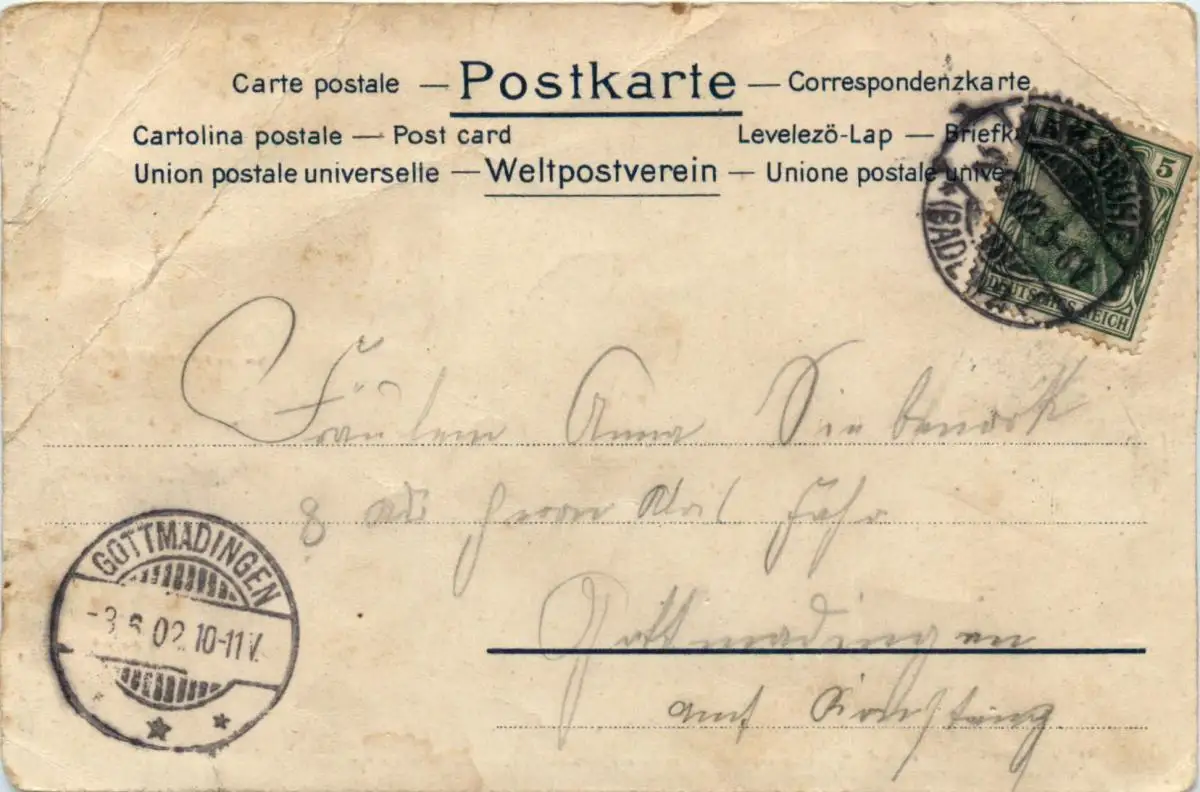 Carte postale — Postkarte — Correspondenzkarte
Cartolina postale — Post card Levelező-Lap — Briefk
Union postale universelle — Weltpostverein — Unione postale unive
KARLSRUHE
(BADEN)
02. 5-6 N
5
DEUTSCHES REICH
Fräulein Anna
8 Herrn
Gottmadingen
amt Konstanz
GOTTMADINGEN
-3.6.02.10-11V.